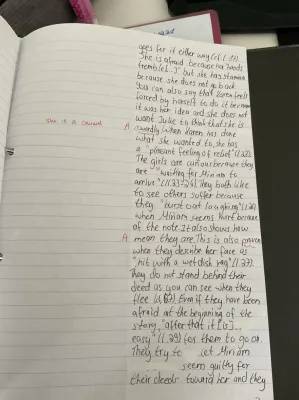 goes for it either way (cf. l. 17).
She is afraid because her hands
tremble (...) but she has stamina
because she does not go back.
You can also say that Karen feels
forced by herself to do it because
it was her idea and she does not
want Julie to think that she is
she is a coward A cowardly. When Karen has done
what she wanted to, she has
a "pleasant feeling of relief" (l. 22).
The girls are curious because they
are "waiting for Miriam to
arrive" (l. 25-26). They both like
to see others suffer because
they "burst out laughing" (l.
when Miriam seems hurt because
of the note. It also shows how
A mean they are. This is also proven
when they describe her face as
"hit with a wet dish rag" (l. 37).
They do not stand behind their
deed as you can see when they
flee (l. Even if they have been
afraid at the beginning of the
story "after that it [is]
easy" (l. 39) for them to go on.
They try to Miriam
seem guilty for
their deeds toward her and they